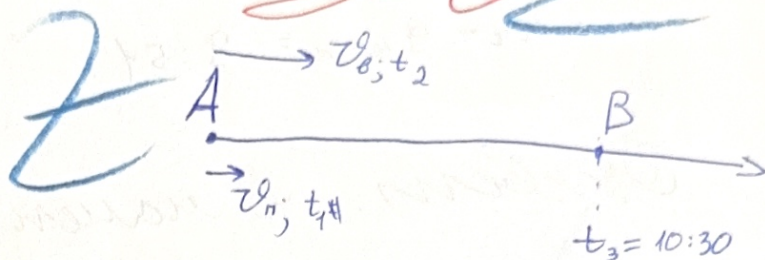 Z
v_в; t_2
A
B
v_п; t_1
t_3 = 10:30